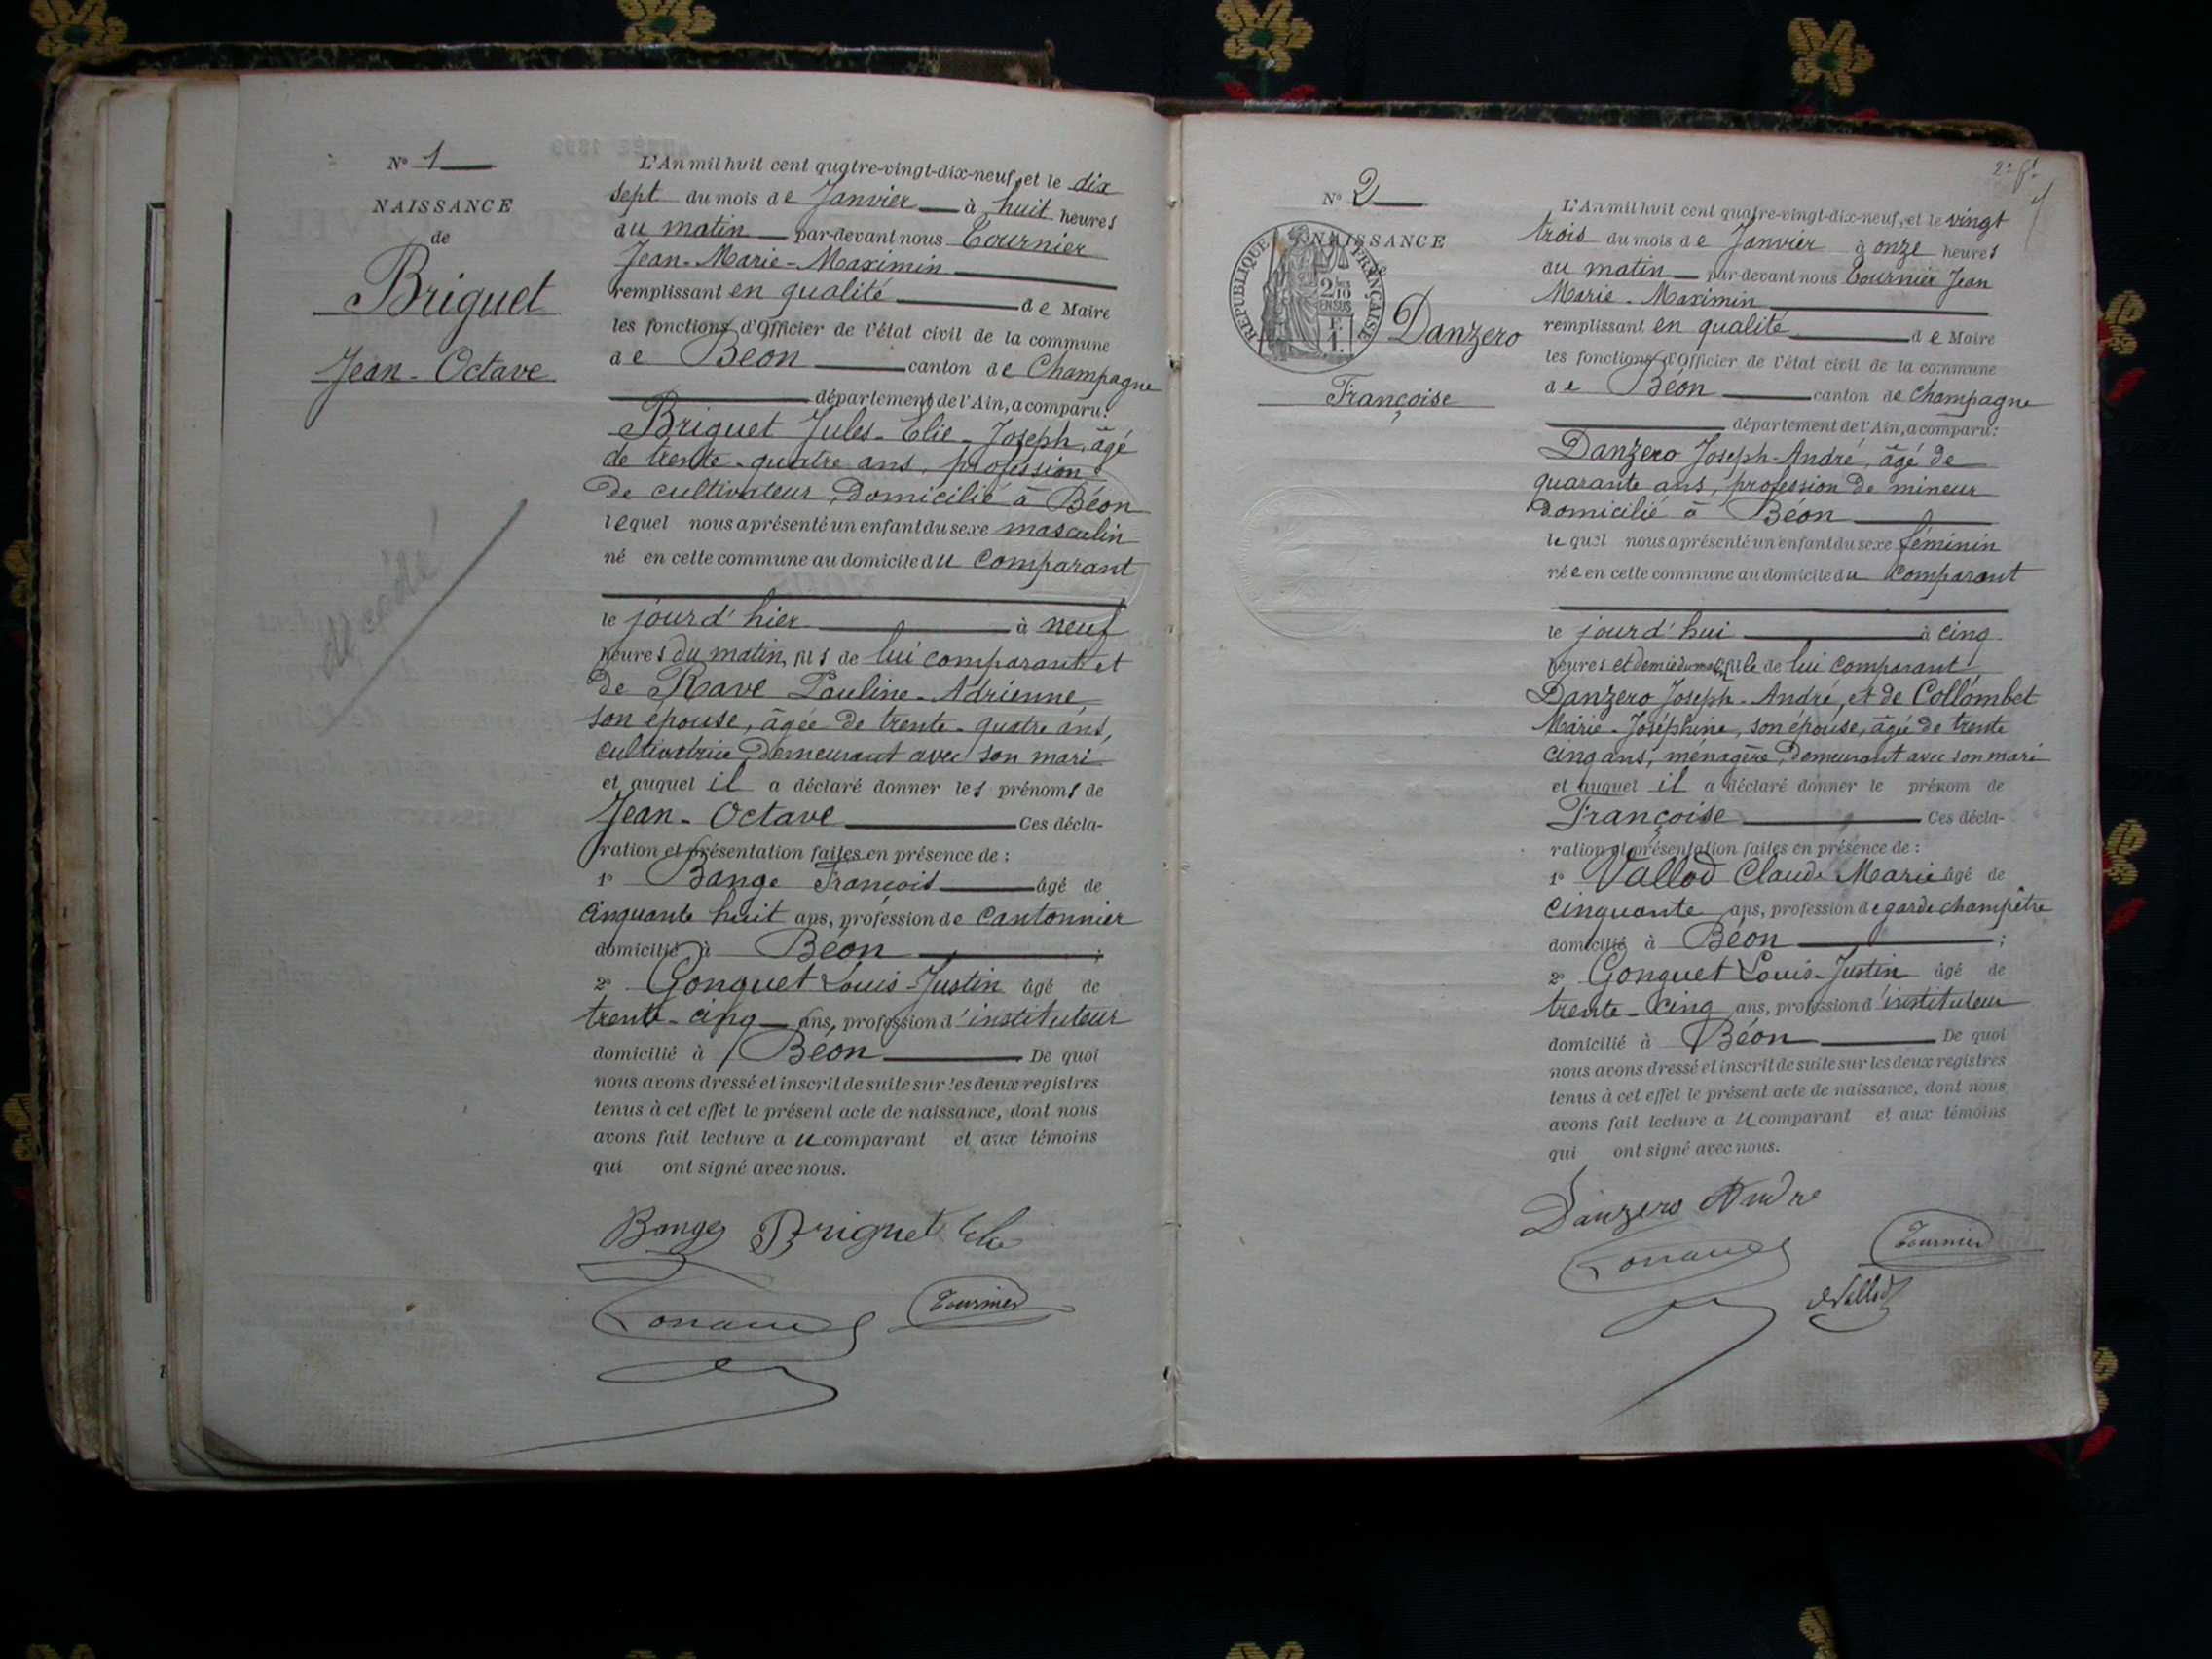 N° 1
NAISSANCE
de
Briguet
Jean-Octave
décédé
L'An mil huit cent quatre-vingt-dix-neuf, et le dix
sept du mois de Janvier à huit heures
du matin par-devant nous Tournier
Jean-Marie-Maximin
remplissant en qualité de Maire
les fonctions d'Officier de l'état civil de la commune
de Béon canton de Champagne
département de l'Ain, a comparu:
Briguet Jules-Elie-Joseph, âgé
de trente-quatre ans, profession
de cultivateur, domicilié à Béon
lequel nous a présenté un enfant du sexe masculin
né en cette commune au domicile du comparant
le jour d'hier à neuf
heures du matin, fils de lui comparant et
de Rave Pauline-Adrienne,
son épouse, âgée de trente-quatre ans,
cultivatrice, demeurant avec son mari
et auquel il a déclaré donner les prénoms de
Jean-Octave Ces décla-
ration et présentation faites en présence de :
1° Bange François âgé de
cinquante huit ans, profession de cantonnier
domicilié à Béon ;
2° Gonguet Louis-Justin âgé de
trente-cinq ans, profession d'instituteur
domicilié à Béon De quoi
nous avons dressé et inscrit de suite sur les deux registres
tenus à cet effet le présent acte de naissance, dont nous
avons fait lecture au comparant et aux témoins
qui ont signé avec nous.
Bange Briguet Elie
Tournier
2e ft
N° 2
NAISSANCE
RÉPUBLIQUE FRANÇAISE
2/10
EN SUS
Danzero
Françoise
L'An mil huit cent quatre-vingt-dix-neuf, et le vingt
trois du mois de Janvier à onze heures
du matin par-devant nous Tournier Jean
Marie-Maximin
remplissant en qualité de Maire
les fonctions d'Officier de l'état civil de la commune
de Béon canton de Champagne
département de l'Ain, a comparu:
Danzero Joseph-André, âgé de
quarante ans, profession de mineur
domicilié à Béon
lequel nous a présenté un enfant du sexe féminin
née en cette commune au domicile du comparant
le jour d'hui à cinq
heures et demie du matin, fille de lui comparant
Danzero Joseph-André, et de Collombet
Marie-Joséphine, son épouse, âgée de trente
cinq ans, ménagère, demeurant avec son mari
et auquel il a déclaré donner le prénom de
Françoise Ces décla-
ration et présentation faites en présence de :
1° Vallod Claude Marie âgé de
cinquante ans, profession de garde champêtre
domicilié à Béon ;
2° Gonguet Louis-Justin âgé de
trente-cinq ans, profession d'instituteur
domicilié à Béon De quoi
nous avons dressé et inscrit de suite sur les deux registres
tenus à cet effet le présent acte de naissance, dont nous
avons fait lecture au comparant et aux témoins
qui ont signé avec nous.
Danzero André
Tournier
Vallod